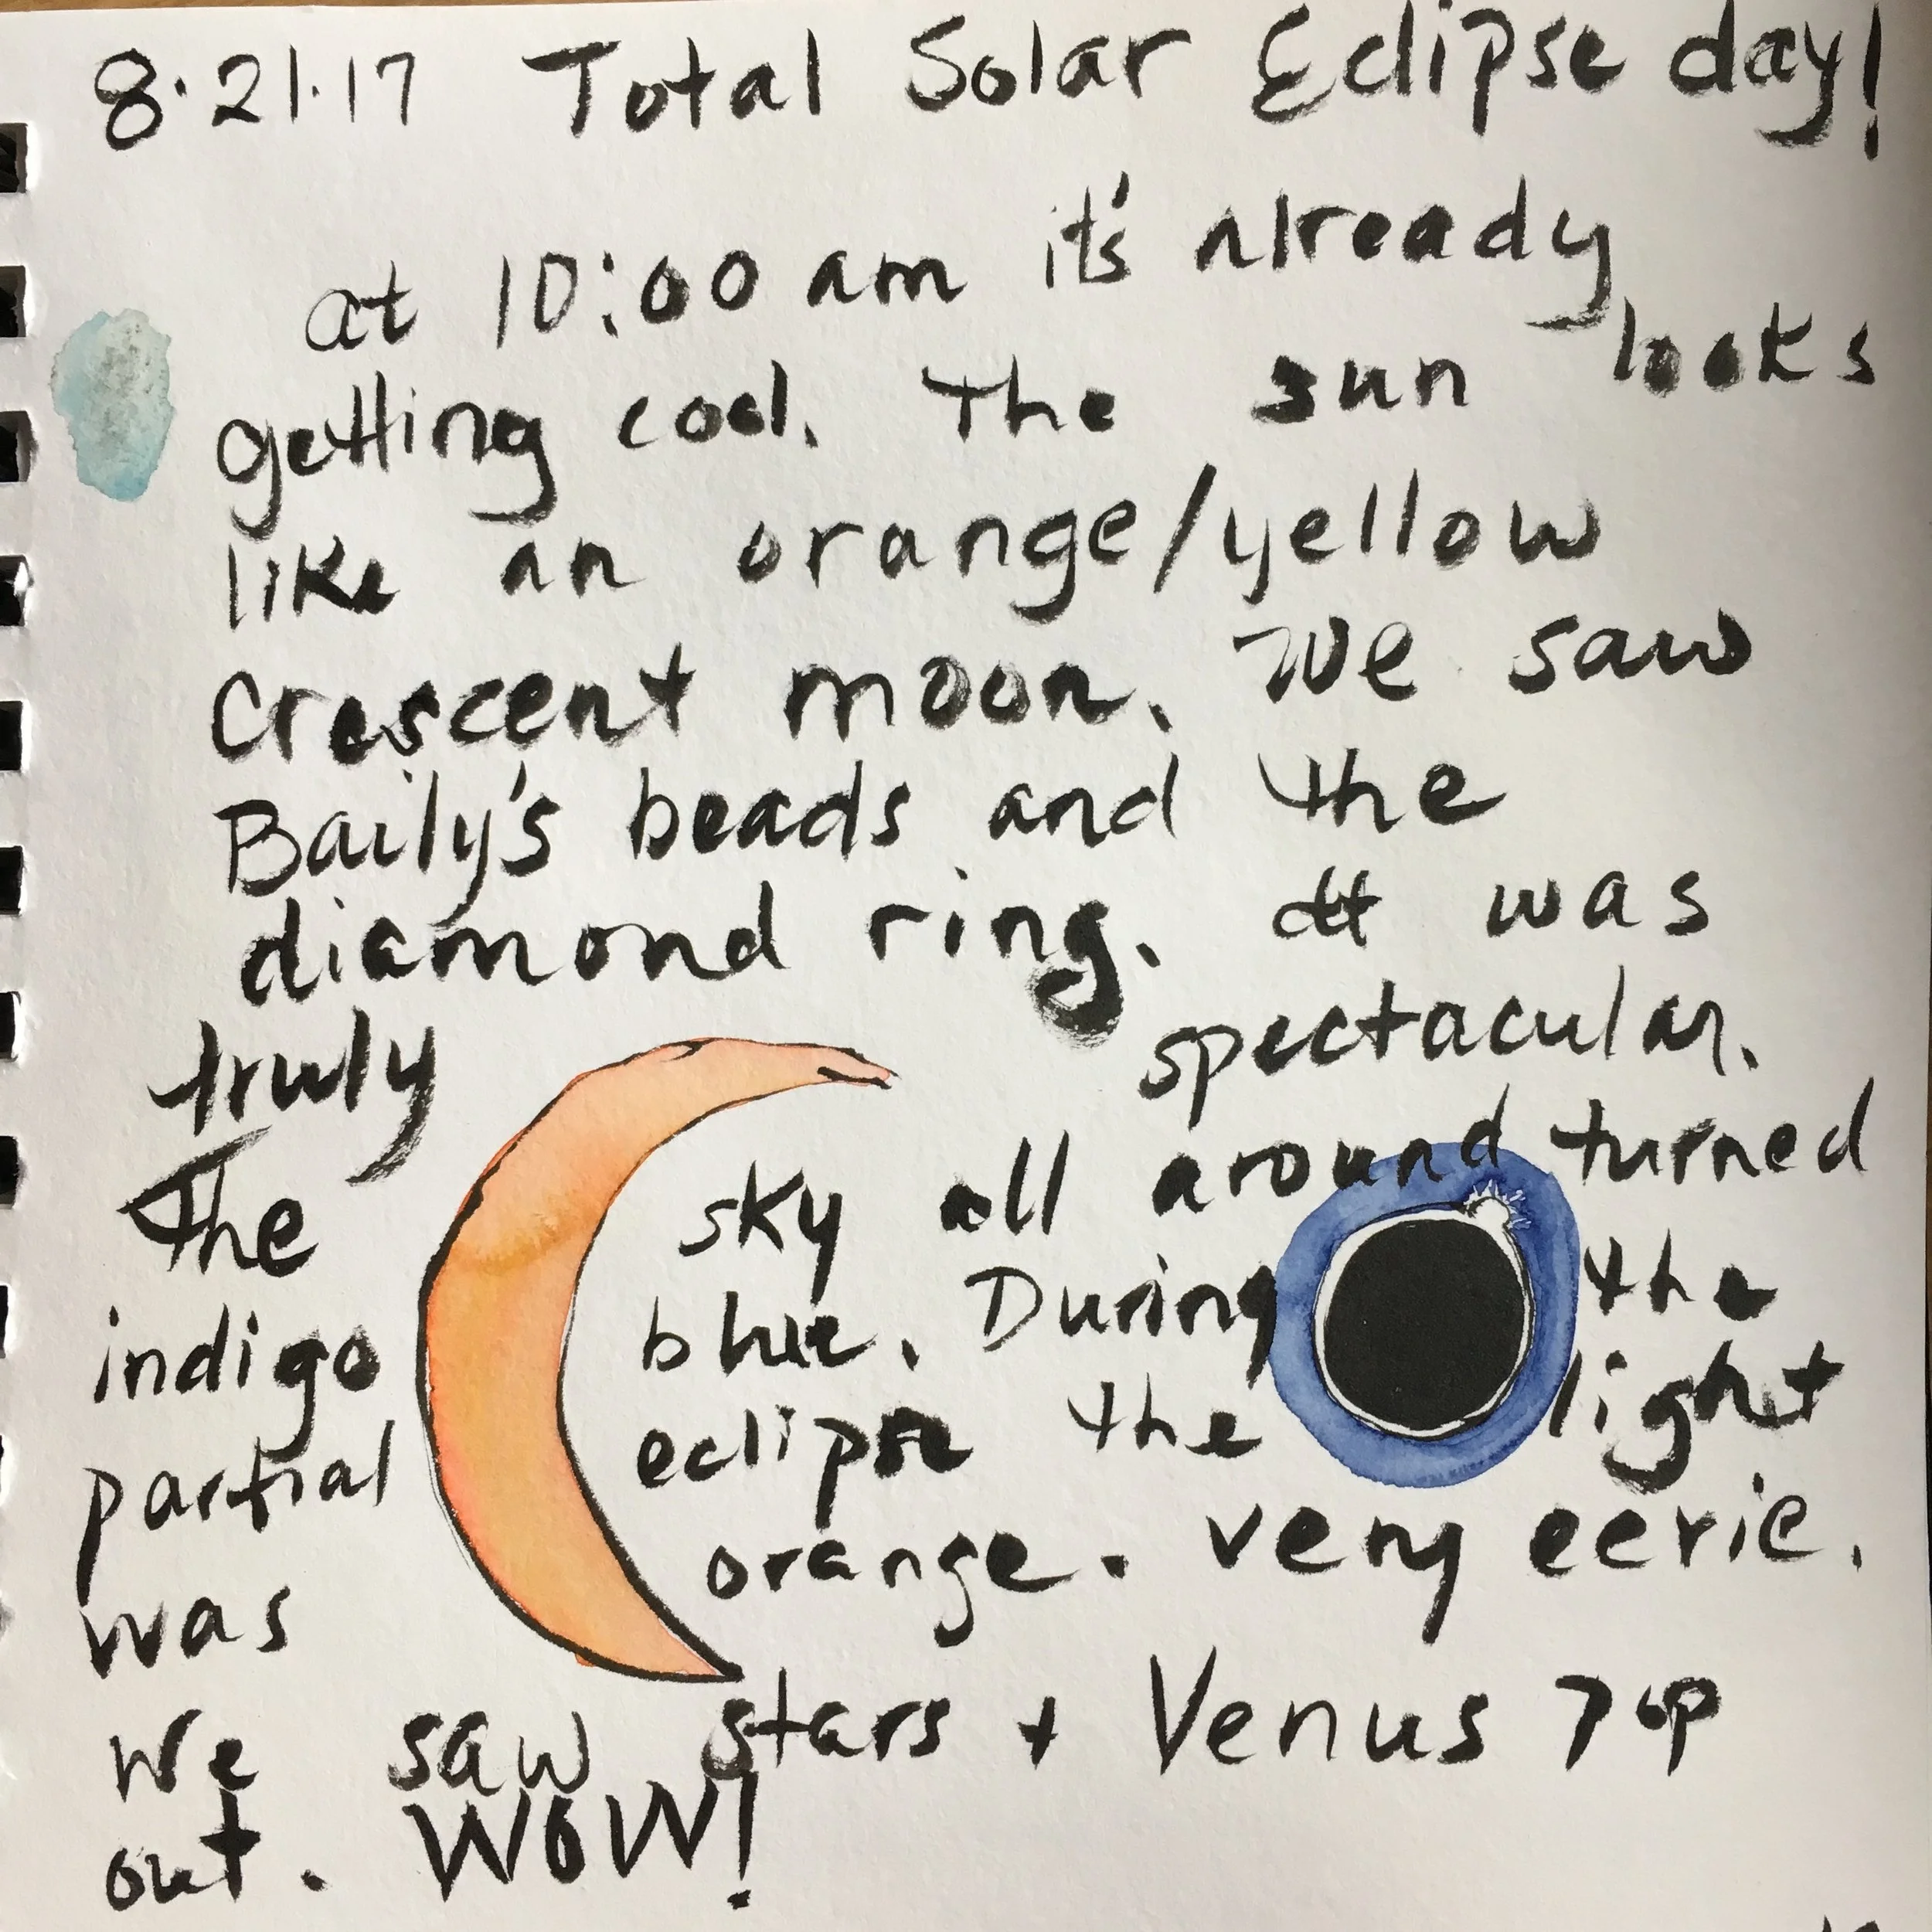 8.21.17 Total Solar Eclipse day!
at 10:00 am it's already
getting cool. The sun looks
like an orange/yellow
crescent moon. We saw
Baily's beads and the
diamond ring. It was
truly spectacular.
The sky all around turned
indigo blue. During the
partial eclipse the light
was orange. very eerie.
We saw stars + Venus pop
out. WOW!